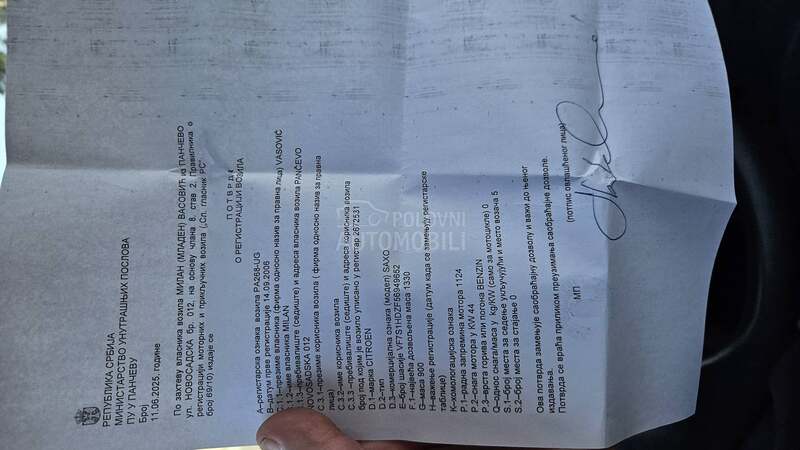 РЕПУБЛИКА СРБИЈА
МИНИСТАРСТВО УНУТРАШЊИХ ПОСЛОВА
ПУ У ПАНЧЕВУ
Број
11.06.2025. године
По захтеву власника возила МИЛАН (МЛАДЕН) ВАСОВИЋ из ПАНЧЕВО
ул. НОВОСАДСКА бр. 012, на основу члана 8. став 2. Правилника о
регистрацији моторних и прикључних возила („Сл. гласник РС",
број 69/10) издаје се
ПОТВРДА
О РЕГИСТРАЦИЈИ ВОЗИЛА
A–регистерска ознака возила PA258-UG
B–датум прве регистрације 14.09.2006
C.1.1–презиме власника (фирма односно назив за правна лица) VASOVIĆ
C.1.2–име власника MILAN
C.1.3–пребивалиште (седиште) и адреса власника возила PANČEVO
NOVOSADSKA 012
C.3.1–презиме корисника возила ( фирма односно назив за правна
лица)
C.3.2–име корисника возила
C.3.3–пребивалиште (седиште) и адреса корисника возила
број под којим је возило уписано у регистар 2672531
D.1–марка CITROEN
D.2–тип
D.3–комерцијална ознака (модел) SAXO
E–број шасије VF7S1HDZF56949652
F.1–највећа дозвољена маса 1330
G–маса 900
H–важење регистрације (датум када се замењују регистарске
таблице)
K–хомологацијска ознака
P.1–радна запремина мотора 1124
P.2–снага мотора у KW 44
P.3–врста горива или погона BENZIN
Q–однос снага/маса у kg/KW (само за мотоцикле) 0
S.1–број места за седење укључујући и место возача 5
S.2–број места за стајање 0
Ова потврда замењује саобраћајну дозволу и важи до њеног
издавања.
Потврда се враћа приликом преузимања саобраћајне дозволе.
МП
(потпис овлашћеног лица)
POLOVNI
AUTOMOBILI